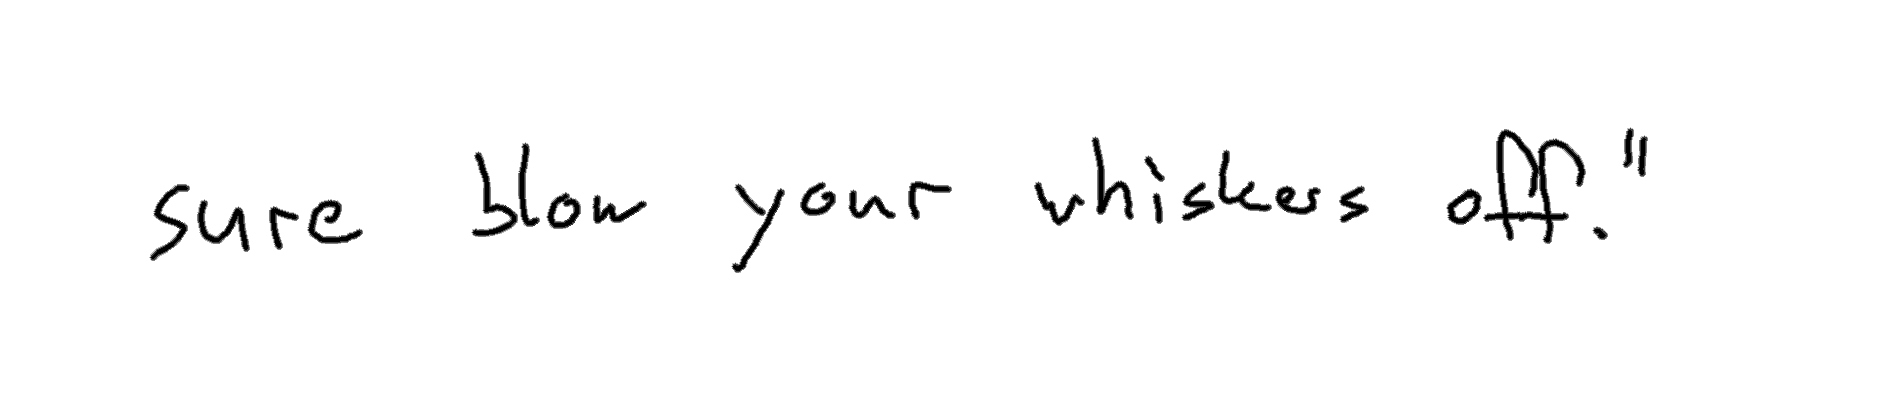 sure blow your whiskers off."